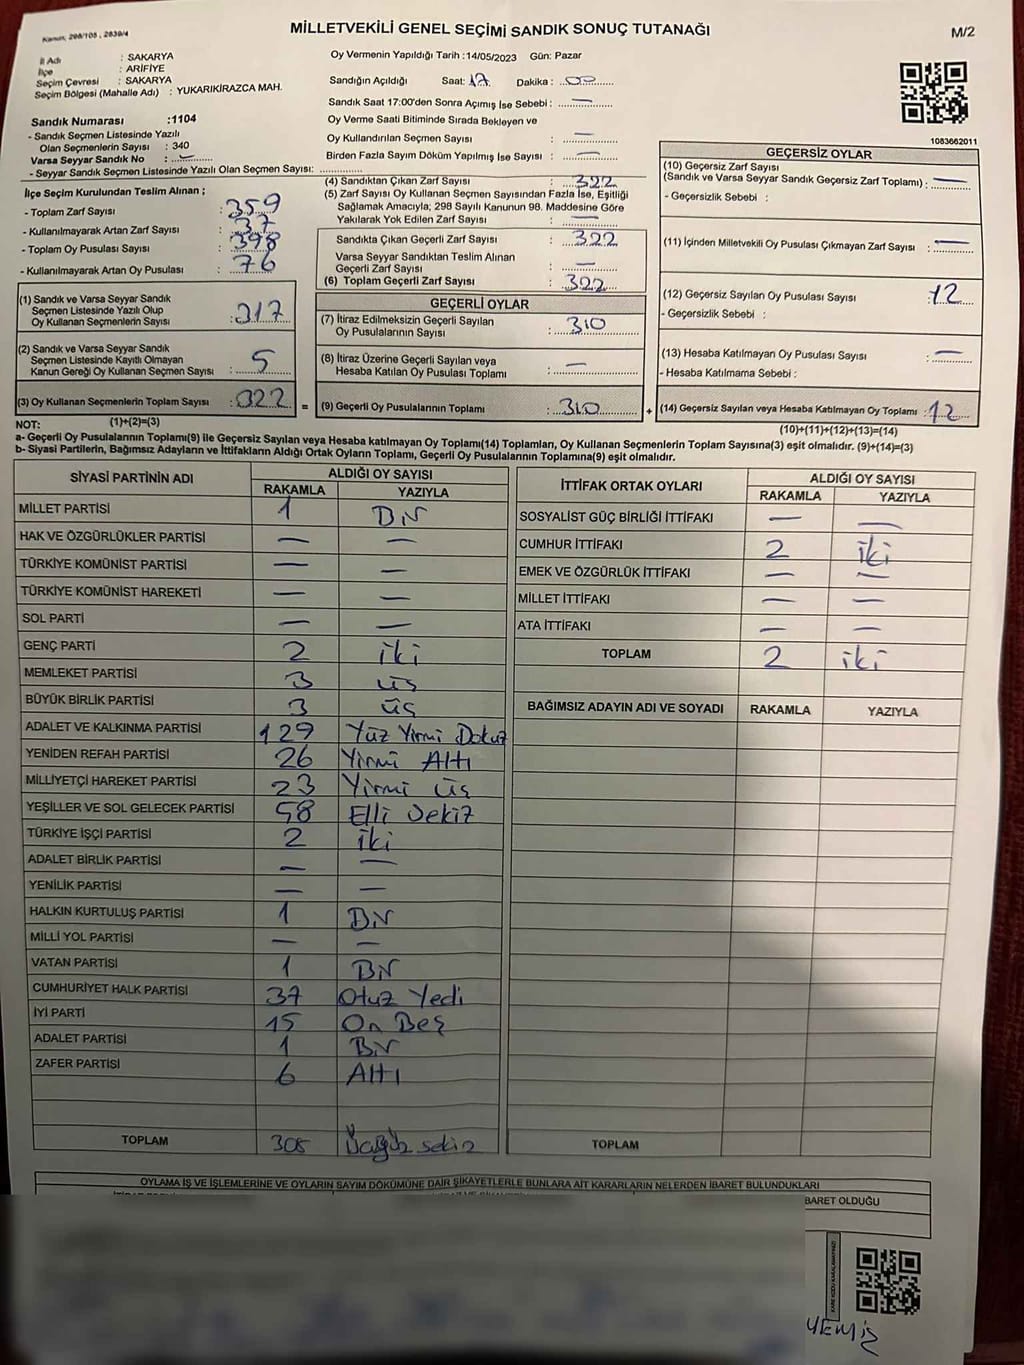 Kanun, 298/105 , 2839/4
MİLLETVEKİLİ GENEL SEÇİMİ SANDIK SONUÇ TUTANAĞI
M/2
İl Adı : SAKARYA
İlçe : ARİFİYE
Seçim Çevresi : SAKARYA
Seçim Bölgesi (Mahalle Adı) : YUKARIKİRAZCA MAH.
Oy Vermenin Yapıldığı Tarih :14/05/2023 Gün: Pazar
Sandığın Açıldığı Saat: 17 Dakika : 00
Sandık Saat 17:00'den Sonra Açımış İse Sebebi : —
Oy Verme Saati Bitiminde Sırada Bekleyen ve
Oy Kullandırılan Seçmen Sayısı : —
Birden Fazla Sayım Döküm Yapılmış İse Sayısı : —
1083662011
Sandık Numarası :1104
- Sandık Seçmen Listesinde Yazılı
Olan Seçmenlerin Sayısı : 340
Varsa Seyyar Sandık No : —
- Seyyar Sandık Seçmen Listesinde Yazılı Olan Seçmen Sayısı:
İlçe Seçim Kurulundan Teslim Alınan ;
- Toplam Zarf Sayısı : 359
- Kullanılmayarak Artan Zarf Sayısı : 37
- Toplam Oy Pusulası Sayısı : 398
- Kullanılmayarak Artan Oy Pusulası : 76
(1) Sandık ve Varsa Seyyar Sandık
Seçmen Listesinde Yazılı Olup
Oy Kullanan Seçmenlerin Sayısı : 317
(2) Sandık ve Varsa Seyyar Sandık
Seçmen Listesinde Kayıtlı Olmayan
Kanun Gereği Oy Kullanan Seçmen Sayısı : 5
(3) Oy Kullanan Seçmenlerin Toplam Sayısı : 322
(1)+(2)=(3)
(4) Sandıktan Çıkan Zarf Sayısı : 322
(5) Zarf Sayısı Oy Kullanan Seçmen Sayısından Fazla İse, Eşitliği
Sağlamak Amacıyla; 298 Sayılı Kanunun 98. Maddesine Göre
Yakılarak Yok Edilen Zarf Sayısı : —
Sandıkta Çıkan Geçerli Zarf Sayısı : 322
Varsa Seyyar Sandıktan Teslim Alınan
Geçerli Zarf Sayısı : —
(6) Toplam Geçerli Zarf Sayısı : 322
GEÇERLİ OYLAR
(7) İtiraz Edilmeksizin Geçerli Sayılan
Oy Pusulalarının Sayısı : 310
(8) İtiraz Üzerine Geçerli Sayılan veya
Hesaba Katılan Oy Pusulası Toplamı : —
= (9) Geçerli Oy Pusulalarının Toplamı : 310
GEÇERSİZ OYLAR
(10) Geçersiz Zarf Sayısı
(Sandık ve Varsa Seyyar Sandık Geçersiz Zarf Toplamı) : —
- Geçersizlik Sebebi :
(11) İçinden Milletvekili Oy Pusulası Çıkmayan Zarf Sayısı : —
(12) Geçersiz Sayılan Oy Pusulası Sayısı : 12
- Geçersizlik Sebebi :
(13) Hesaba Katılmayan Oy Pusulası Sayısı : —
- Hesaba Katılmama Sebebi :
+ (14) Geçersiz Sayılan veya Hesaba Katılmayan Oy Toplamı : 12
(10)+(11)+(12)+(13)=(14)
NOT:
a- Geçerli Oy Pusulalarının Toplamı(9) ile Geçersiz Sayılan veya Hesaba katılmayan Oy Toplamı(14) Toplamları, Oy Kullanan Seçmenlerin Toplam Sayısına(3) eşit olmalıdır. (9)+(14)=(3)
b- Siyasi Partilerin, Bağımsız Adayların ve İttifakların Aldığı Ortak Oyların Toplamı, Geçerli Oy Pusulalarının Toplamına(9) eşit olmalıdır.
SİYASİ PARTİNİN ADI ALDIĞI OY SAYISI
RAKAMLA YAZIYLA
MİLLET PARTİSİ 1 Bir
HAK VE ÖZGÜRLÜKLER PARTİSİ — —
TÜRKİYE KOMÜNİST PARTİSİ — —
TÜRKİYE KOMÜNİST HAREKETİ — —
SOL PARTİ — —
GENÇ PARTİ 2 iki
MEMLEKET PARTİSİ 3 üç
BÜYÜK BİRLİK PARTİSİ 3 üç
ADALET VE KALKINMA PARTİSİ 129 Yüz Yirmi Dokuz
YENİDEN REFAH PARTİSİ 26 Yirmi Altı
MİLLİYETÇİ HAREKET PARTİSİ 23 Yirmi üç
YEŞİLLER VE SOL GELECEK PARTİSİ 58 Elli Sekiz
TÜRKİYE İŞÇİ PARTİSİ 2 iki
ADALET BİRLİK PARTİSİ — —
YENİLİK PARTİSİ — —
HALKIN KURTULUŞ PARTİSİ 1 Bir
MİLLİ YOL PARTİSİ — —
VATAN PARTİSİ 1 Bir
CUMHURİYET HALK PARTİSİ 37 Otuz Yedi
İYİ PARTİ 15 On Beş
ADALET PARTİSİ 1 Bir
ZAFER PARTİSİ 6 Altı
TOPLAM 308 Üçyüz sekiz
İTTİFAK ORTAK OYLARI ALDIĞI OY SAYISI
RAKAMLA YAZIYLA
SOSYALİST GÜÇ BİRLİĞİ İTTİFAKI — —
CUMHUR İTTİFAKI 2 iki
EMEK VE ÖZGÜRLÜK İTTİFAKI — —
MİLLET İTTİFAKI — —
ATA İTTİFAKI — —
TOPLAM 2 iki
BAĞIMSIZ ADAYIN ADI VE SOYADI RAKAMLA YAZIYLA
TOPLAM
OYLAMA İŞ VE İŞLEMLERİNE VE OYLARIN SAYIM DÖKÜMÜNE DAİR ŞİKAYETLERLE BUNLARA AİT KARARLARIN NELERDEN İBARET BULUNDUKLARI
BARET OLDUĞU